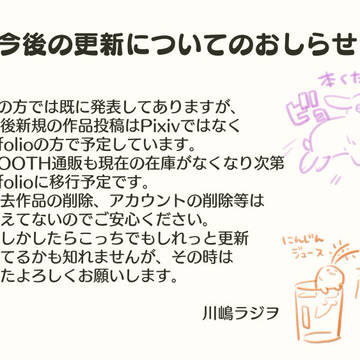 今後の更新についてのおしらせ
の方では既に発表してありますが、
後新規の作品投稿はPixivではなく
folioの方で予定しています。
OOTH通販も現在の在庫がなくなり次第
folioに移行予定です。
去作品の削除、アカウントの削除等は
えてないのでご安心ください。
しかしたらこっちでもしれっと更新
てるかも知れませんが、その時は
たよろしくお願いします。
川嶋ラジヲ
にんじん
ジュース